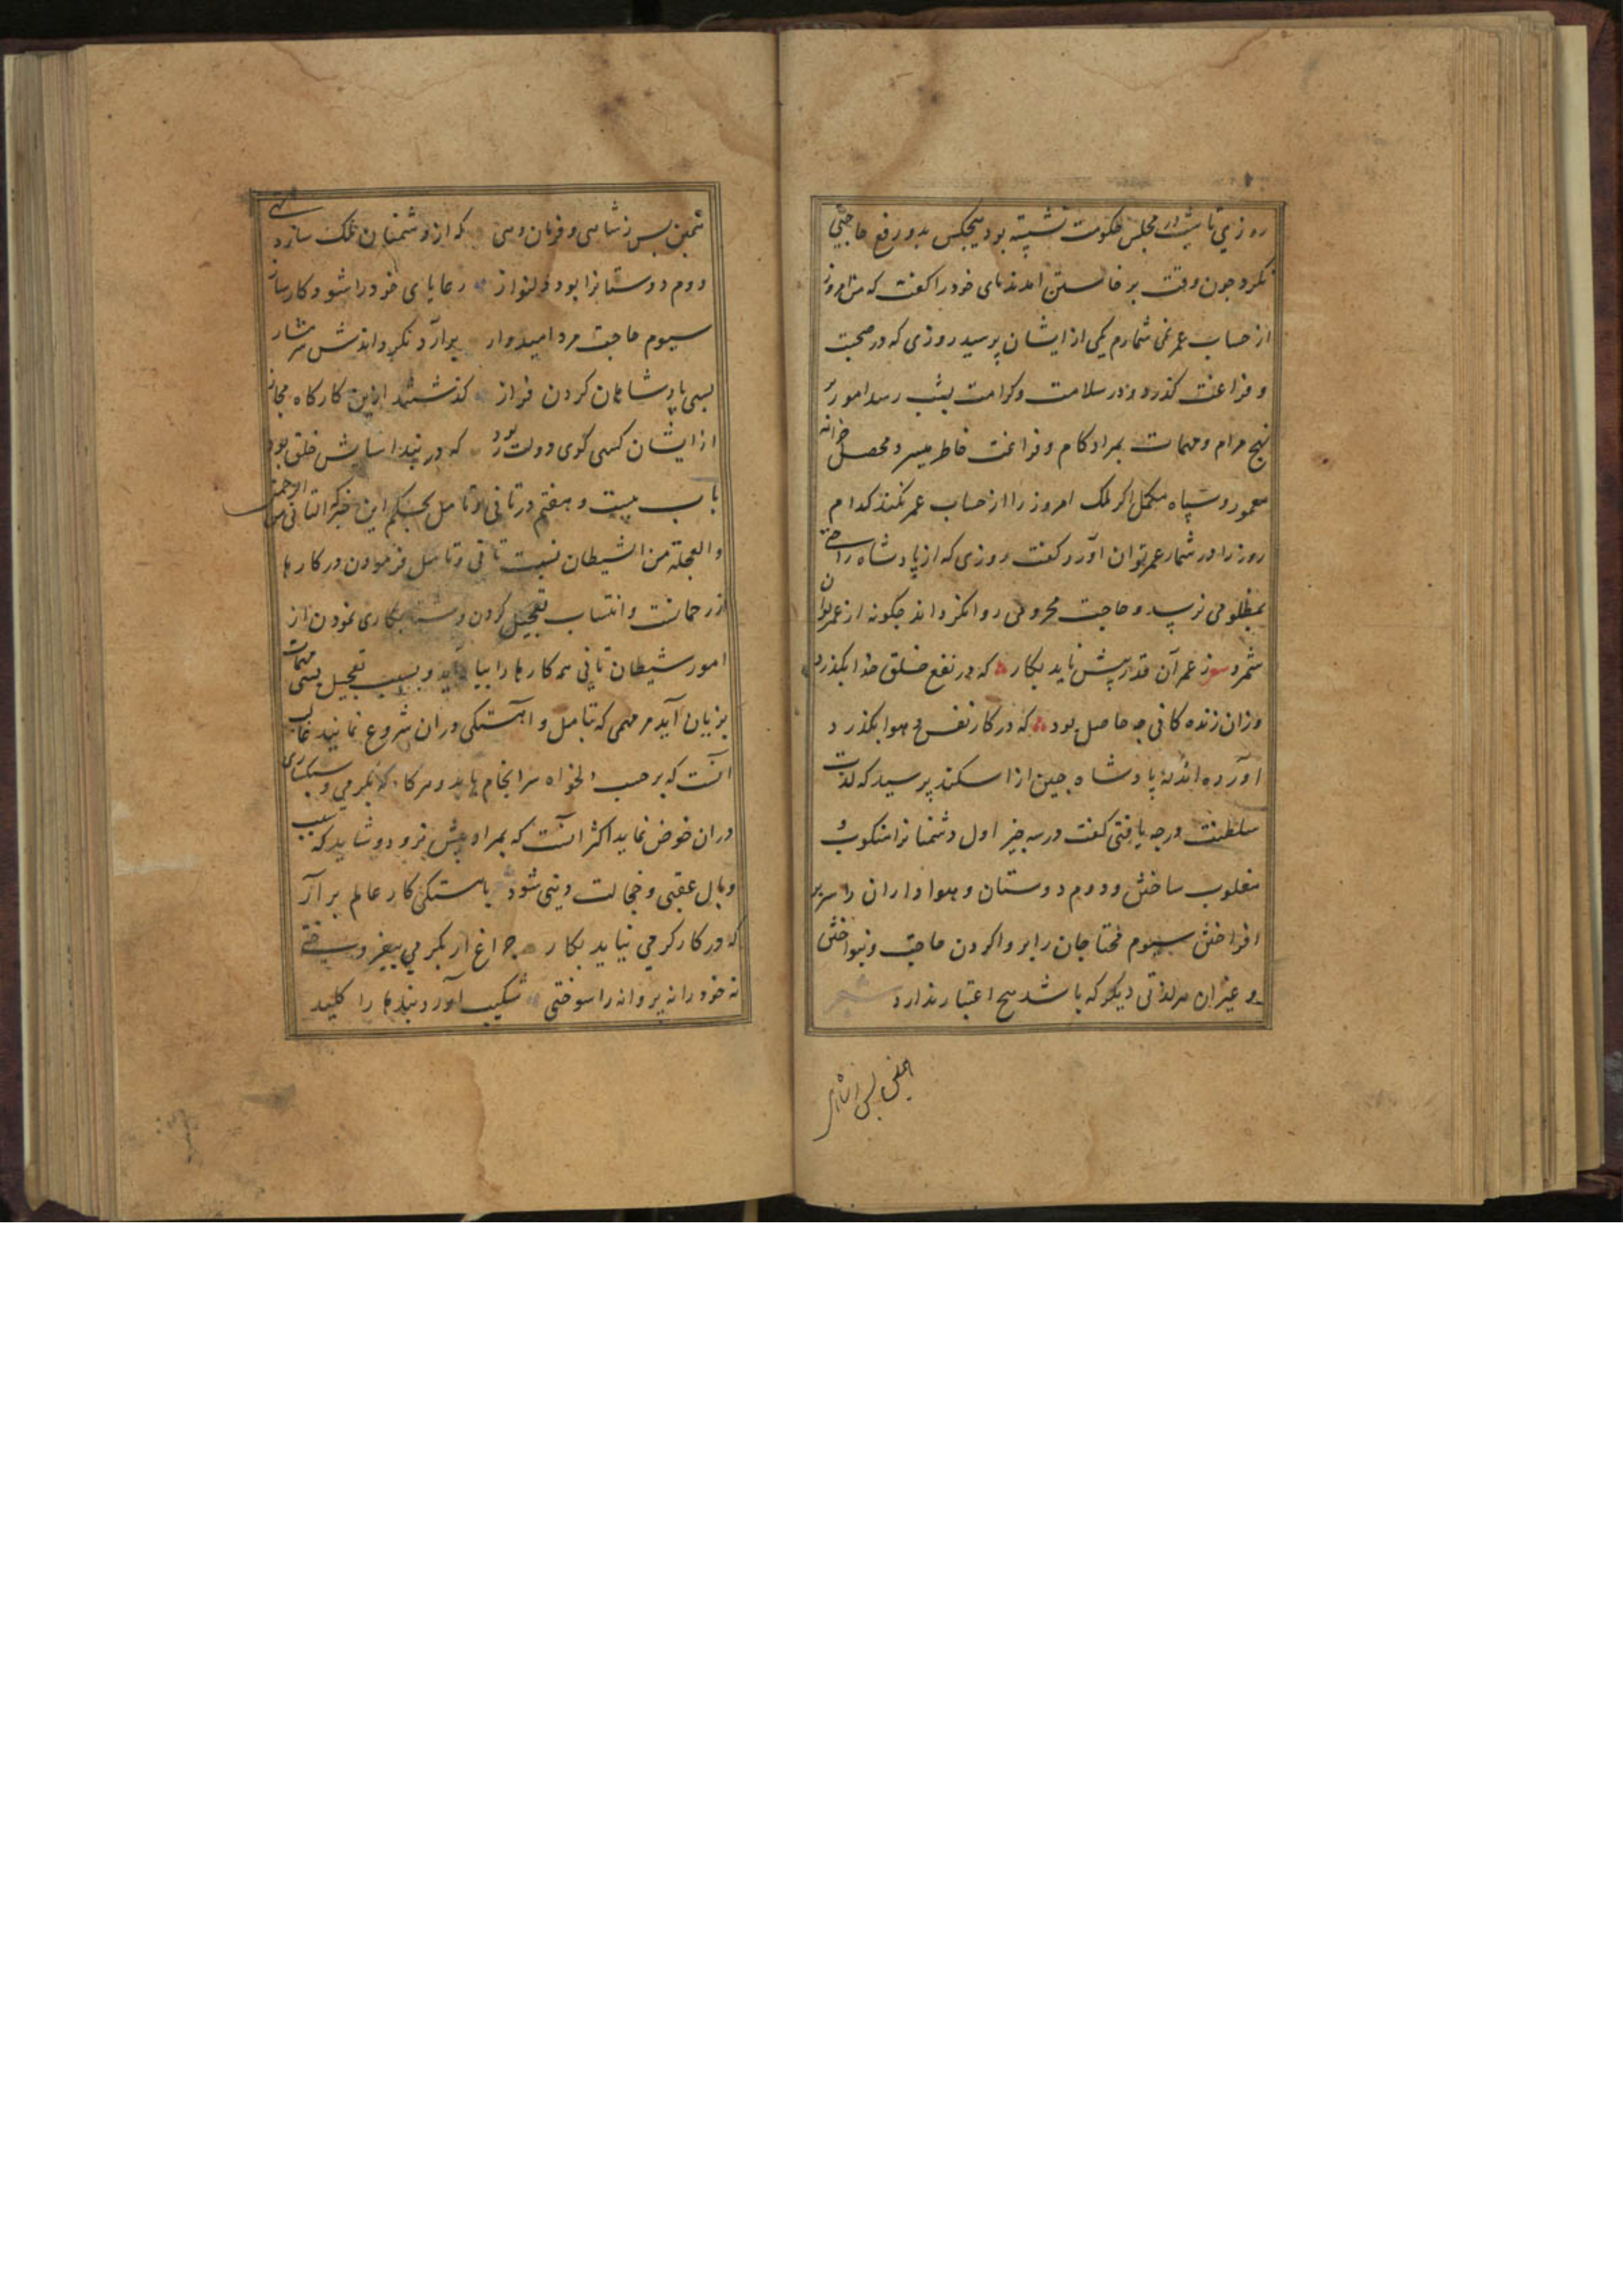 روزي تا شب در مجلس حکومت نشسته بود هیچکس بدو رفع حاجتی
نکرد چون وقت برخاستن امد ندمای خود را کفت که من امروز
از حساب عمر نمی شمارم یکی از ایشان پرسید روزی که در صحبت
و فراغت کذرد و در سلامت و کرامت بشب رسد امور بر
نهج مرام و مهمات بمراد کام و فراغت خاطر میسر و محصل خزانه
معمور و سپاه مکمل اکر ملک امروز را از حساب عمر نکند کدام
روز را در شمار عمر توان آورد کفت روزی که از پادشاه راحتی
بمظلومی نرسد و حاجت محرومی روا نکرداند چکونه از عمر توان
شمرد ز عمر آن قدر پیش ناید بکار که در نفع خلق خدا بکذرد
وزان زنده کانی چه حاصل بود که در کار نفس و هوا بکذرد
اورده اند که پادشاه چین از اسکندر پرسید که لذت
سلطنت در چه یافتی کفت در سه چیز اول دشمنانرا منکوب و
مغلوب ساختن و دوم دوستان و هواداران را سربر
افراختن سیوم محتاجان را بروا کردن حاجت و نبواختن
و غیر ازان هر لذتی دیکر که باشد هیچ اعتبار ندارد
همین بس ز شاهی
همین بس ز شاهی و فرمان دهی که از دشمنان ملک سازد تهی
دوم دوستانرا بود دلنواز رعایای خود را شود کارساز
سیوم حاجت مرد امیدوار برآرد نکرداندش شرمسار
بسی پادشاهان کردن فراز کذشتند ازین کارکاه مجاز
از ایشان کسی کوی دولت ربود که در بند اسایش خلق بود
باب بیست و هفتم در تانی و تامل بحکم این خبر که التانی من الرحمن
و العجلة من الشیطان نسبت تانی و تامل فرمودن در کارها
از رحمانست و انتساب تعجیل کردن و شتابکاری نمودن از
امور شیطان تانی همه کارها را بیاراید و بسبب تعجیل بسی مهمات
بزیان آید هر مهمی که بتامل و اهستکی دران شروع نمایند غالب
انست که بر حسب دلخواه سرانجام یابد و هر کار که بکرمی و سبکساری
دران خوض نماید اکثر انست که بمراد پیش نرود و شاید که سبب
وبال عقبی و خجالت دینی شود باهستکی کار عالم برآر
که در کار کرمی نیاید بکار چراغ ار بکرمی نیفروختی
نه خود را نه پروانه را سوختی شکیب آورد بندها را کلید